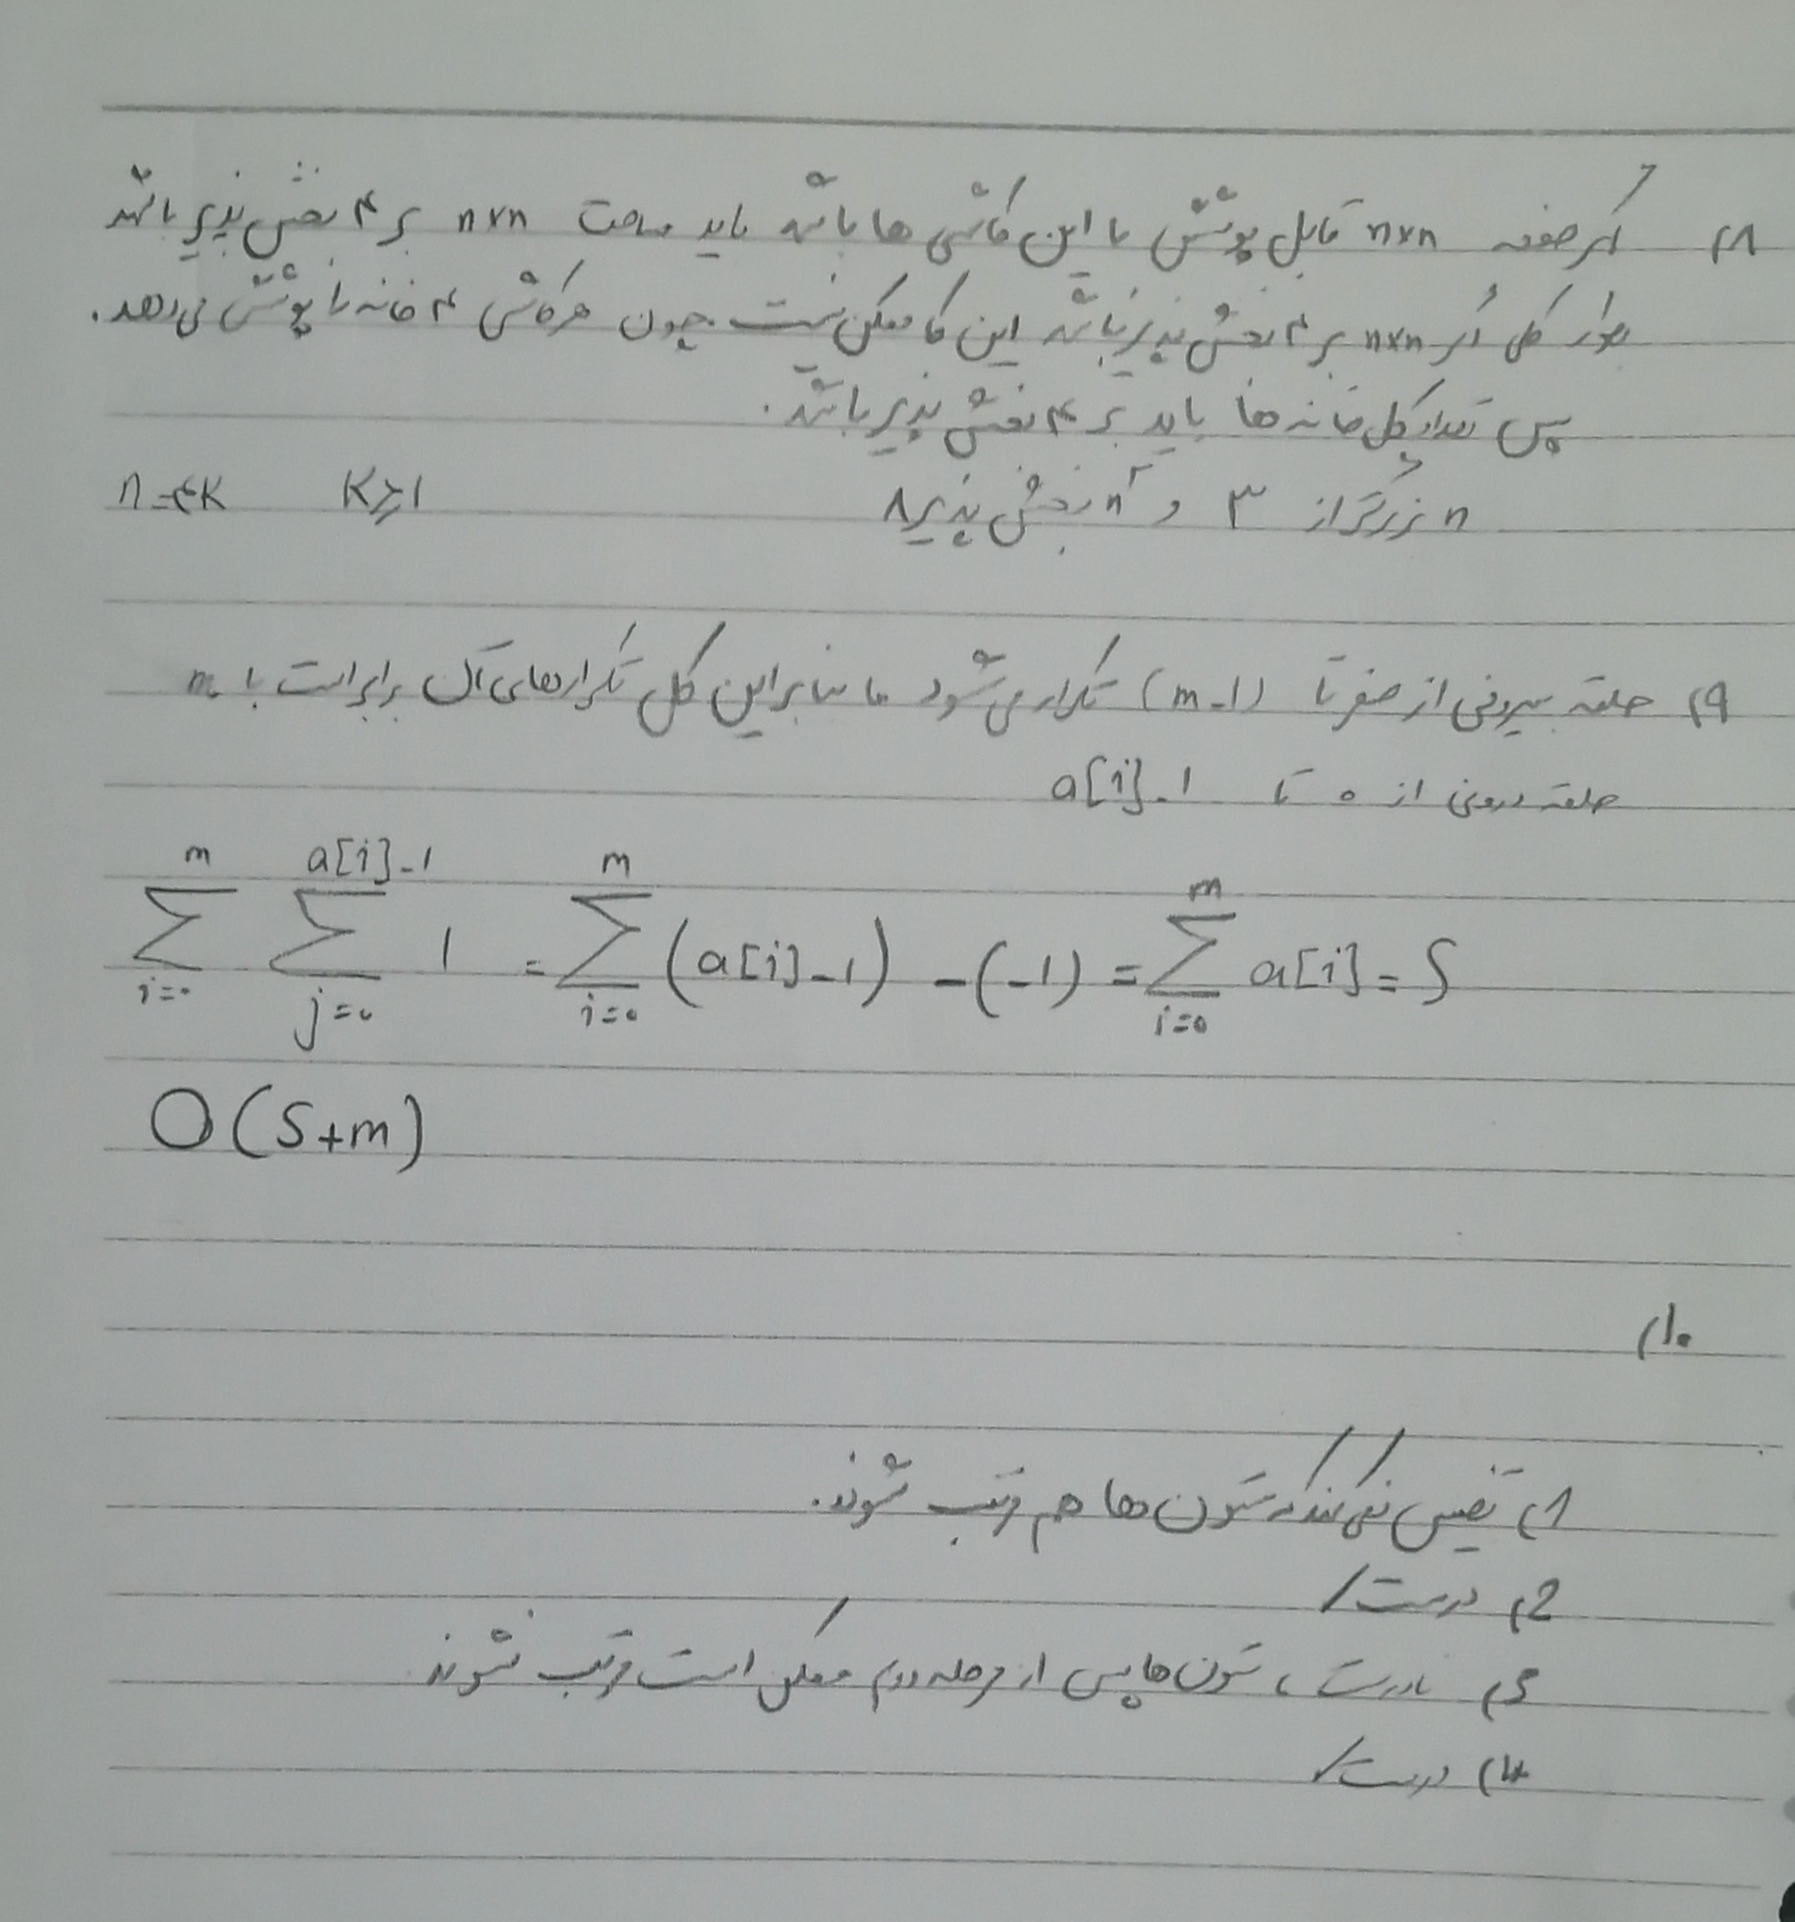 ۸) اگر صفحه n×n قابل پوشش با این کاشی ها باشد باید مساحت n×n بر ۴ بخش پذیر باشد
بطور کلی اگر n×n بر ۴ بخش پذیر نباشد این کا ممکن نیست چون هر کاشی ۴ خانه را پوشش می دهد.
پس تعداد کل خانه ها باید بر ۴ بخش پذیر باشد.
n بزرگتر از ۳ و n² بخش پذیر ۸ K≥1 n=۴K
۹) حلقه بیرونی از صفر تا (m-1) تکرار می شود بنابراین کل تکرارهای آن برابر است با m
حلقه درونی از 0 تا a[i]-1
∑_{i=0}^{m} ∑_{j=0}^{a[i]-1} 1 = ∑_{i=0}^{m} (a[i]-1) -(-1) = ∑_{i=0}^{m} a[i] = S
O(S+m)
۱۰)
1) تضمین نمی کند که ستون ها هم مرتب شوند.
2) درست
3) نادرست، ستون ها پس از مرحله دوم ممکن است مرتب نشوند
۴) درست